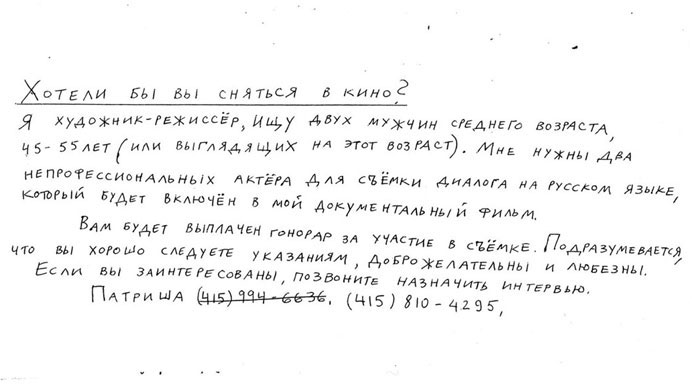 Хотели бы вы сняться в кино?
Я художник-режиссёр, ищу двух мужчин среднего возраста,
45-55 лет (или выглядящих на этот возраст). Мне нужны два
непрофессиональных актёра для съёмки диалога на русском языке,
который будет включён в мой документальный фильм.
Вам будет выплачен гонорар за участие в съёмке. Подразумевается,
что вы хорошо следуете указаниям, доброжелательны и любезны.
Если вы заинтересованы, позвоните назначить интервью.
Патриша (415) 994-6636. (415) 810-4295,